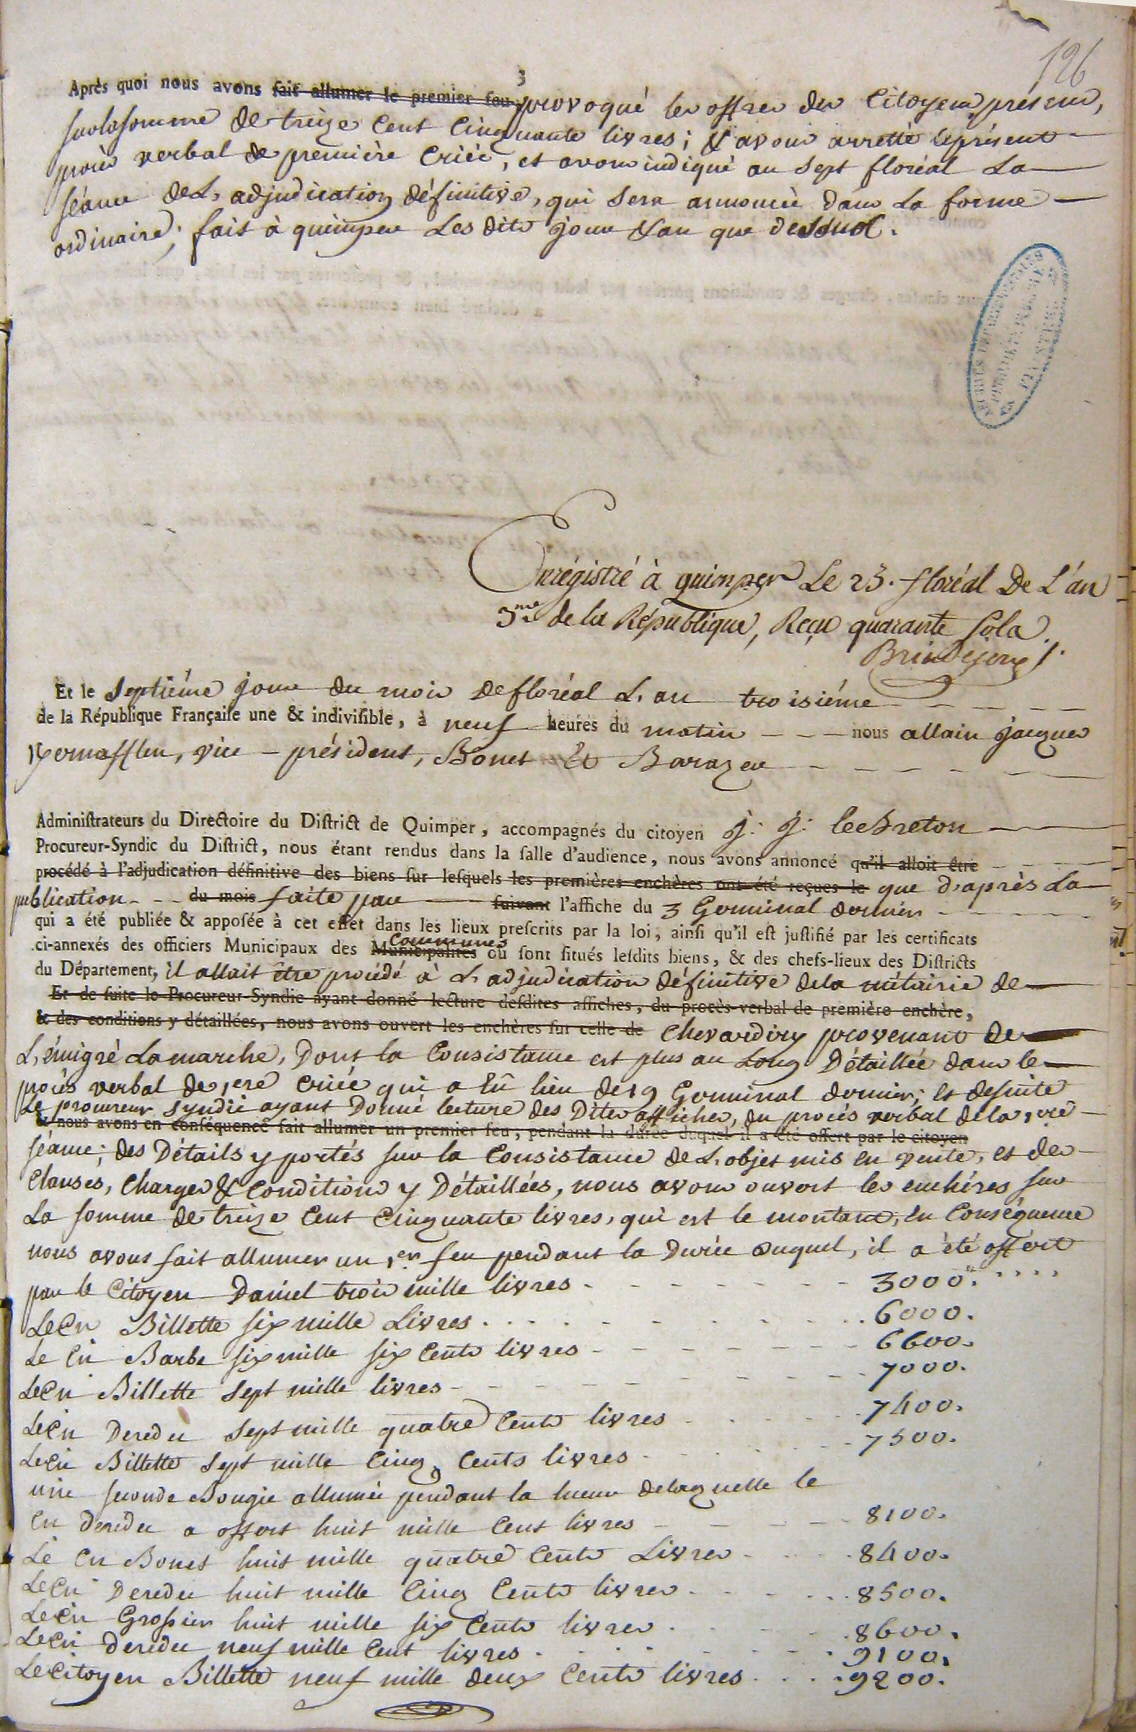 126
3
Après quoi nous avons fait allumer le premier feu, provoqué les offres des Citoyens présens,
sur la somme de treize cent cinquante livres; & avons arretté le présent
procès verbal de première criée, et avons indiqué au sept floréal La
séance de L'adjudication définitive, qui sera annoncée dans la forme
ordinaire; fait à quimper Les dits jour & an que dessus.
ARCHIVES DÉPARTEMENTALES
FINISTÈRE
Enrégistré à quimper Le 23. floréal De L'an
3me de la République, Reçu quarante sols
Et le septième jour du mois de floréal L'an troisième
de la République Française une & indivisible, à neuf heures du matin nous allain jacques
Kernafflen, vice-président, Bonet Et Barazer
Administrateurs du Directoire du District de Quimper, accompagnés du citoyen J. J. le Breton
Procureur-Syndic du District, nous étant rendus dans la salle d'audience, nous avons annoncé qu'il alloit être
procédé à l'adjudication définitive des biens sur lesquels les premières enchères ont été reçues le que d'après La
publication du mois faite par suivant l'affiche du 3 Germinal dernier
qui a été publiée & apposée à cet effet dans les lieux prescrits par la loi, ainsi qu'il est justifié par les certificats
Communes
ci-annexés des officiers Municipaux des Municipalités où sont situés lesdits biens, & des chefs-lieux des Districts
du Département, il allait être procédé à L'adjudication définitive de la métairie de
Et de suite le Procureur-Syndic ayant donné lecture desdites affiches, du procès-verbal de première enchère,
& des conditions y détaillées, nous avons ouvert les enchères sur celle de Chevardiry provenant de
L'émigré Lamarche, Dont la Consistance est plus au Long Détaillée dans le
procès verbal de 1ere criée qui a Eû lieu de 19 Germinal dernier; et de suite
Le procureur syndic ayant Donné lecture des Dites affiches, du procès verbal de la 1ere
& nous avons en conséquence fait allumer un premier feu, pendant la durée duquel il a été offert par le citoyen
séance; des Détails y portés sur la Consistance de L'objet mis en vente, et des
Clauses, Charges & Conditions y Détaillées, nous avons ouvert les enchères sur
La somme de treize Cent Cinquante livres, qui est le montant, En Conséquence
nous avons fait allumer un 1er feu pendant la Durée Duquel, il a été offert
par le Citoyen Daniel trois mille livres 3000.
Le Cn Billette six mille Livres 6000.
Le Cn Barbe six mille six Cents livres 6600.
Le Cn Billette sept mille livres 7000.
Le Cn Deredec sept mille quatre Cents livres 7400.
Le Cn Billette sept mille Cinq Cents livres 7500.
une seconde Bougie allumée pendant la lueur de laquelle le
Cn Deredec a offert huit mille Cent livres 8100.
Le Cn Bonet huit mille quatre Cents Livres 8400.
Le Cn Deredec huit mille Cinq Cents livres 8500.
Le Cn Grossier huit mille six Cents livres 8600.
Le Cn Deredec neuf mille Cent livres 9100.
Le Citoyen Billette neuf mille deux Cents livres 9200.